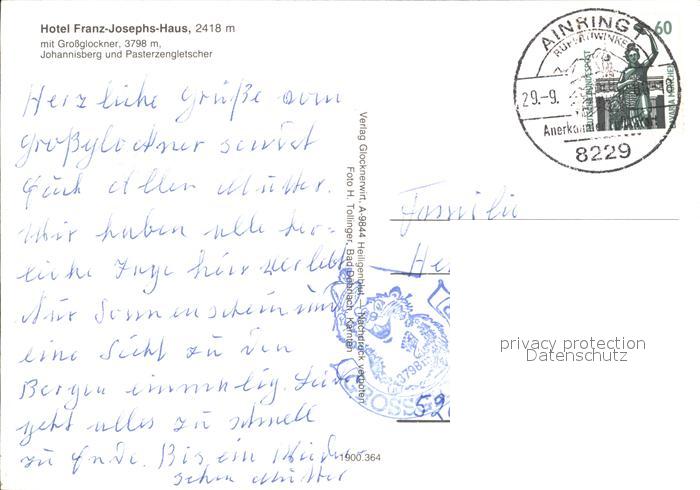 Hotel Franz-Josephs-Haus, 2418 m
mit Großglockner, 3798 m,
Johannisberg und Pasterzengletscher
Herzliche Grüße vom
Großglockner sendet
Euch allen Mutter.
Wir haben alle herr-
liche Tage hier verlebt
Nur Sonnenschein und
eine Sicht zu den
Bergen einmalig. Leider
geht alles zu schnell
zu Ende. Bis ein Wieder-
sehen Mutter
Verlag Glocknerwirt, A-9844 Heiligenblut – Nachdruck verboten
Foto H. Tollinger, Bad Dellach, Kärnten
1900.364
AINRING 1
29.-9.
8229
60
DEUTSCHE BUNDESPOST
BAVARIA MÜNCHEN
Familie
He
3798
GROSSG
52
privacy protection
Datenschutz